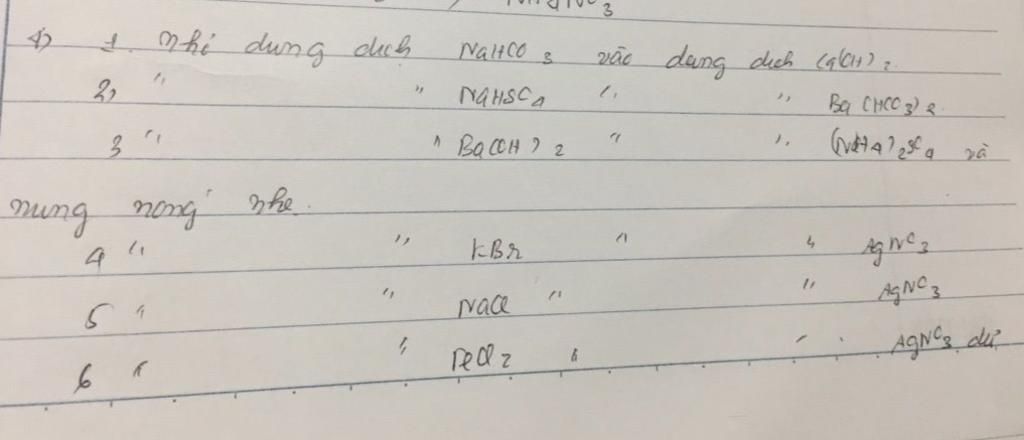 NH4NO3
4) 1. nhỏ dung dịch NaHCO3 vào dung dịch Ca(OH)2.
2, " " NaHSO4 " " Ba(HCO3)2
3 " " Ba(OH)2 " " (NH4)2SO4 và
nung nóng nhẹ.
4 " " KBr " " AgNO3
5 " " NaCl " " AgNO3
6 " " FeCl2 " " AgNO3 dư